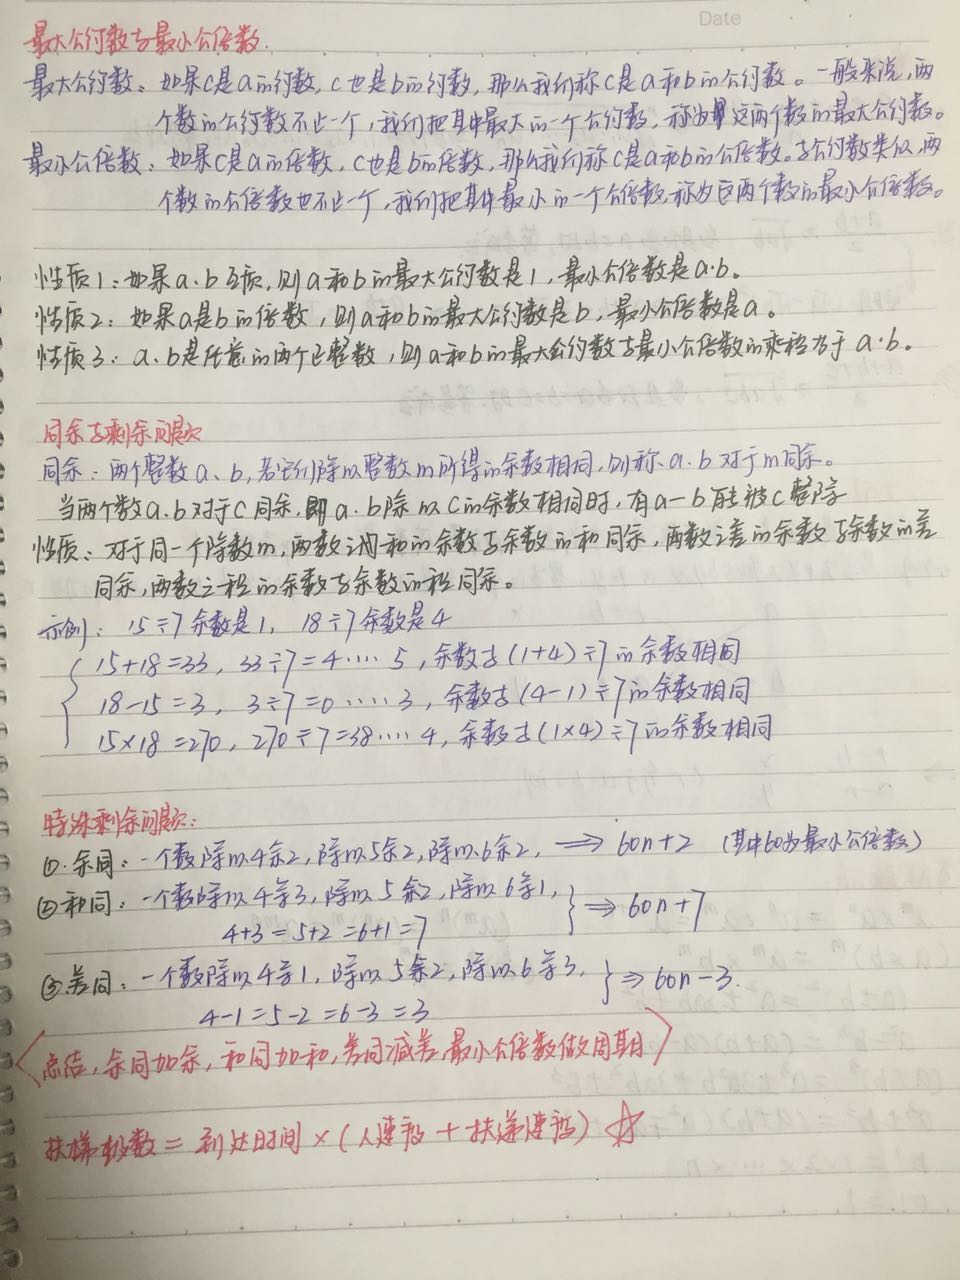 Date
最大公约数与最小公倍数.
最大公约数: 如果c是a的约数, c也是b的约数, 那么我们称c是a和b的公约数。一般来说, 两
个数的公约数不止一个, 我们把其中最大的一个公约数, 称为这两个数的最大公约数。
最小公倍数: 如果c是a的倍数, c也是b的倍数, 那么我们称c是a和b的公倍数。与公约数类似, 两
个数的公倍数也不止一个, 我们把其中最小的一个公倍数, 称为这两个数的最小公倍数。
性质1: 如果a·b互质, 则a和b的最大公约数是1, 最小公倍数是a·b。
性质2: 如果a是b的倍数, 则a和b的最大公约数是b, 最小公倍数是a。
性质3: a·b是任意的两个正整数, 则a和b的最大公约数与最小公倍数的乘积等于a·b。
同余与剩余问题
同余: 两个整数a、b, 若它们除以整数m所得的余数相同, 则称a·b对于m同余。
当两个数a·b对于c同余, 即a·b除以c的余数相同时, 有a-b能被c整除
性质: 对于同一个除数m, 两数之和的余数与余数的和同余, 两数之差的余数与余数的差
同余, 两数之积的余数与余数的积同余。
示例: 15÷7余数是1, 18÷7余数是4
15+18=33, 33÷7=4····5, 余数与(1+4)÷7的余数相同
18-15=3, 3÷7=0····3, 余数与(4-1)÷7的余数相同
15×18=270, 270÷7=38····4, 余数与(1×4)÷7的余数相同
特殊剩余问题:
①.余同: 一个数除以4余2, 除以5余2, 除以6余2, ⟹ 60n+2 (其中60为最小公倍数)
②和同: 一个数除以4余3, 除以5余2, 除以6余1, } ⟹ 60n+7
4+3=5+2=6+1=7
③差同: 一个数除以4余1, 除以5余2, 除以6余3, } ⟹ 60n-3.
4-1=5-2=6-3=3
总结, 余同加余, 和同加和, 差同减差, 最小公倍数做周期
扶梯级数 = 到达时间 × (人速度 + 扶梯速度) ☆